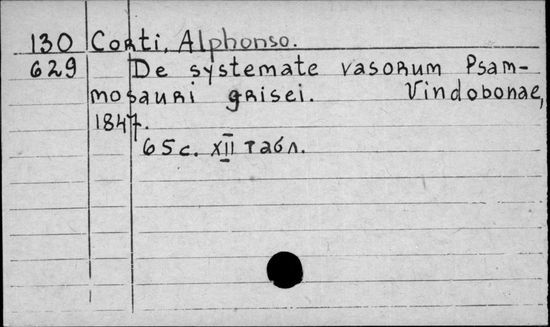 130 Corti, Alphonso.
629 De systemate vasorum Psam-
mosauri grisei. Vindobonae,
1847.
65 с. XII табл.